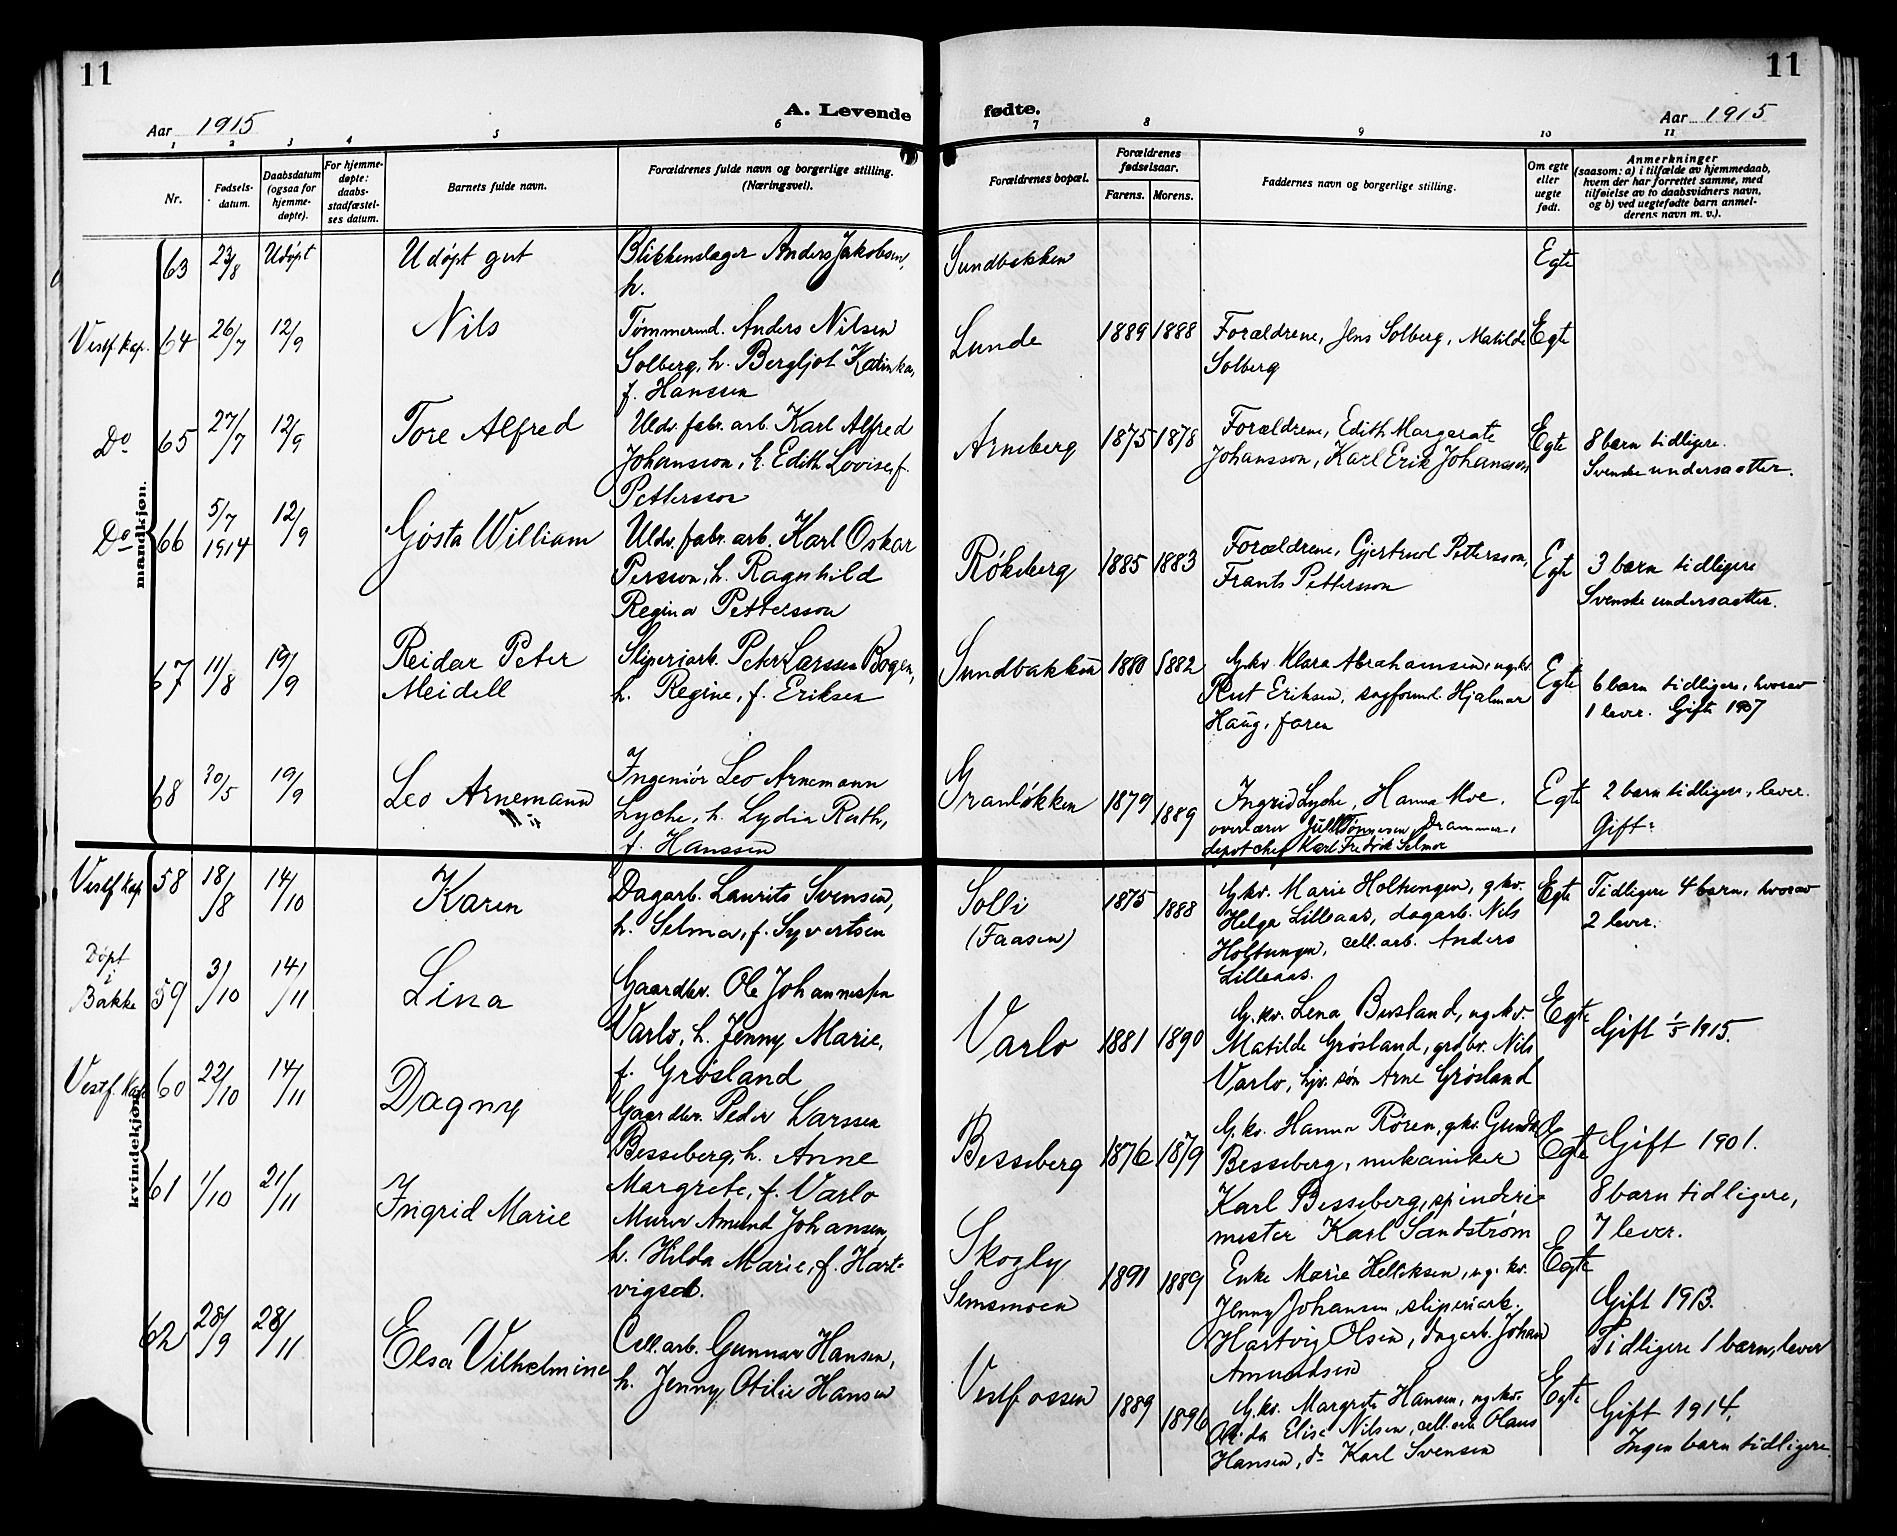 11
Aar 1915
A. Levende
1 2 3 4 5 6
Nr.
Fødsels-
datum.
Daabsdatum
(ogsaa for
hjemme-
døpte).
For hjemme-
døpte:
daabs-
stadfæstel-
ses datum.
Barnets fulde navn.
Forældrenes fulde navn og borgerlige stilling.
(Næringsvei).
mandkjøn.
63 23/8 Udøpt Udøpt gut
Blikkenslager Anders Jakobsen,
h.
Vestf. kap. 64 26/7 12/9 Nils
Tømmermd. Anders Nilsen
Solberg, h. Bergljot Katinka,
f. Hanssen
Do 65 27/7 12/9 Tore Alfred
Uldv. fabr. arb. Karl Alfred
Johansson, h. Edith Lovise, f.
Pettersson
Do 66 5/7 1914 12/9 Gösta William
Uldv. fabr. arb. Karl Oskar
Persson, h. Ragnhild
Regina Pettersson
67 11/8 19/9 Reidar Peter
Meidell
Sliperiarb. Peter Larssen Bogen,
h. Regine, f. Eriksen
68 30/5 19/9 Leo Arnemann
Ingeniör Leo Arnemann
Lyche, h. Lydia Ruth,
f. Hanssen
kvindekjøn.
Vestf. kap 58 18/8 14/10 Karen
Dagarb. Laurits Svensen,
h. Selma, f. Syvertsen
Døpt
i
Bakke 59 3/10 14/11 Lina
Gaardbr. Ole Johannessen
Varlo, h. Jenny Marie,
f. Grøsland
Vestf. kap 60 22/10 14/11 Dagny
Gaardbr. Peder Larssen
Besseberg, h. Anne
Margrete, f. Varlo
61 1/10 21/11 Ingrid Marie
Murer Amund Johansen,
h. Hilda Marie, f. Hart-
vigsen.
62 28/9 28/11 Elsa Vilhelmine
Cell. arb. Gunnar Hansen,
h. Jenny Otilie Hansen
11
fødte.
Aar 1915
7 8 9 10 11
Forældrenes bopæl.
Forældrenes
fødselsaar.
Farens. Morens.
Faddernes navn og borgerlige stilling.
Om egte
eller
uegte
født.
Anmerkninger
(saasom: a) i tilfælde av hjemmedaab,
hvem der har forrettet samme, med
tilføielse av to daabsvidners navn,
og b) ved uegtefødte barn anmel-
derens navn m. v.).
Sundbakken Egte
Lunde 1889 1888 Forældrene, Jens Solberg, Matilde
Solberg Egte
Arneberg 1875 1878 Forældrene, Edith Margarate
Johansson, Karl Erik Johansson Egte
8 barn tidligere.
Svenske undersaatter.
Røkeberg 1885 1883 Forældrene, Gjertrud Pettersson,
Frants Pettersson Egte
3 barn tidligere
Svenske undersaatter.
Sundbakken 1880 1882 G.kv. Klara Abrahamsen, ug.kv.
Rut Eriksen, sagformd. Hjalmar
Haug, faren Egte
6 barn tidligere, hvorav
1 lever. Gift 1907
Granløkken 1879 1889 Ingrid Lyche, Hanna Moe,
overlærer Tönnesen, Drammen,
depotchef Karl Fredrik Selmer Egte
2 barn tidligere, lever.
Gift
Solli
(Faasen) 1875 1888 G.kv. Marie Holtungen, g.kv.
Helga Lilleaas, dagarb. Nils
Holtungen, cell. arb. Anders
Lilleaas. Egte
Tidligere 4 barn, hvorav
2 lever.
Varlo 1881 1890 G. kv. Lena Busland, ug.kv.
Matilde Grøsland, grdbr. Nils
Varlo, hjv. søn Arne Grøsland Egte
Gift 1/5 1915.
Besseberg 1876 1879 G.kv. Hanna Røren, g.kv.
Besseberg, mekaniker
Karl Besseberg, spinderi-
mester Karl Sandstrøm Egte
Gift 1901.
8 barn tidligere,
7 lever.
Skogly
Semsmoen 1891 1889 Enke Marie Helleksen, ug. kv.
Jenny Johansen, sliperiarb.
Hartvig Olsen, dagarb. Johan
Amundsen Egte
Gift 1913.
Tidligere 1 barn, lever
Vestfossen 1889 1896 G.kv. Margrete Hansen, ug.kv.
Elise Nilsen, cell. arb. Olaus
Hansen, do Karl Svensen Egte
Gift 1914.
Ingen barn tidligere